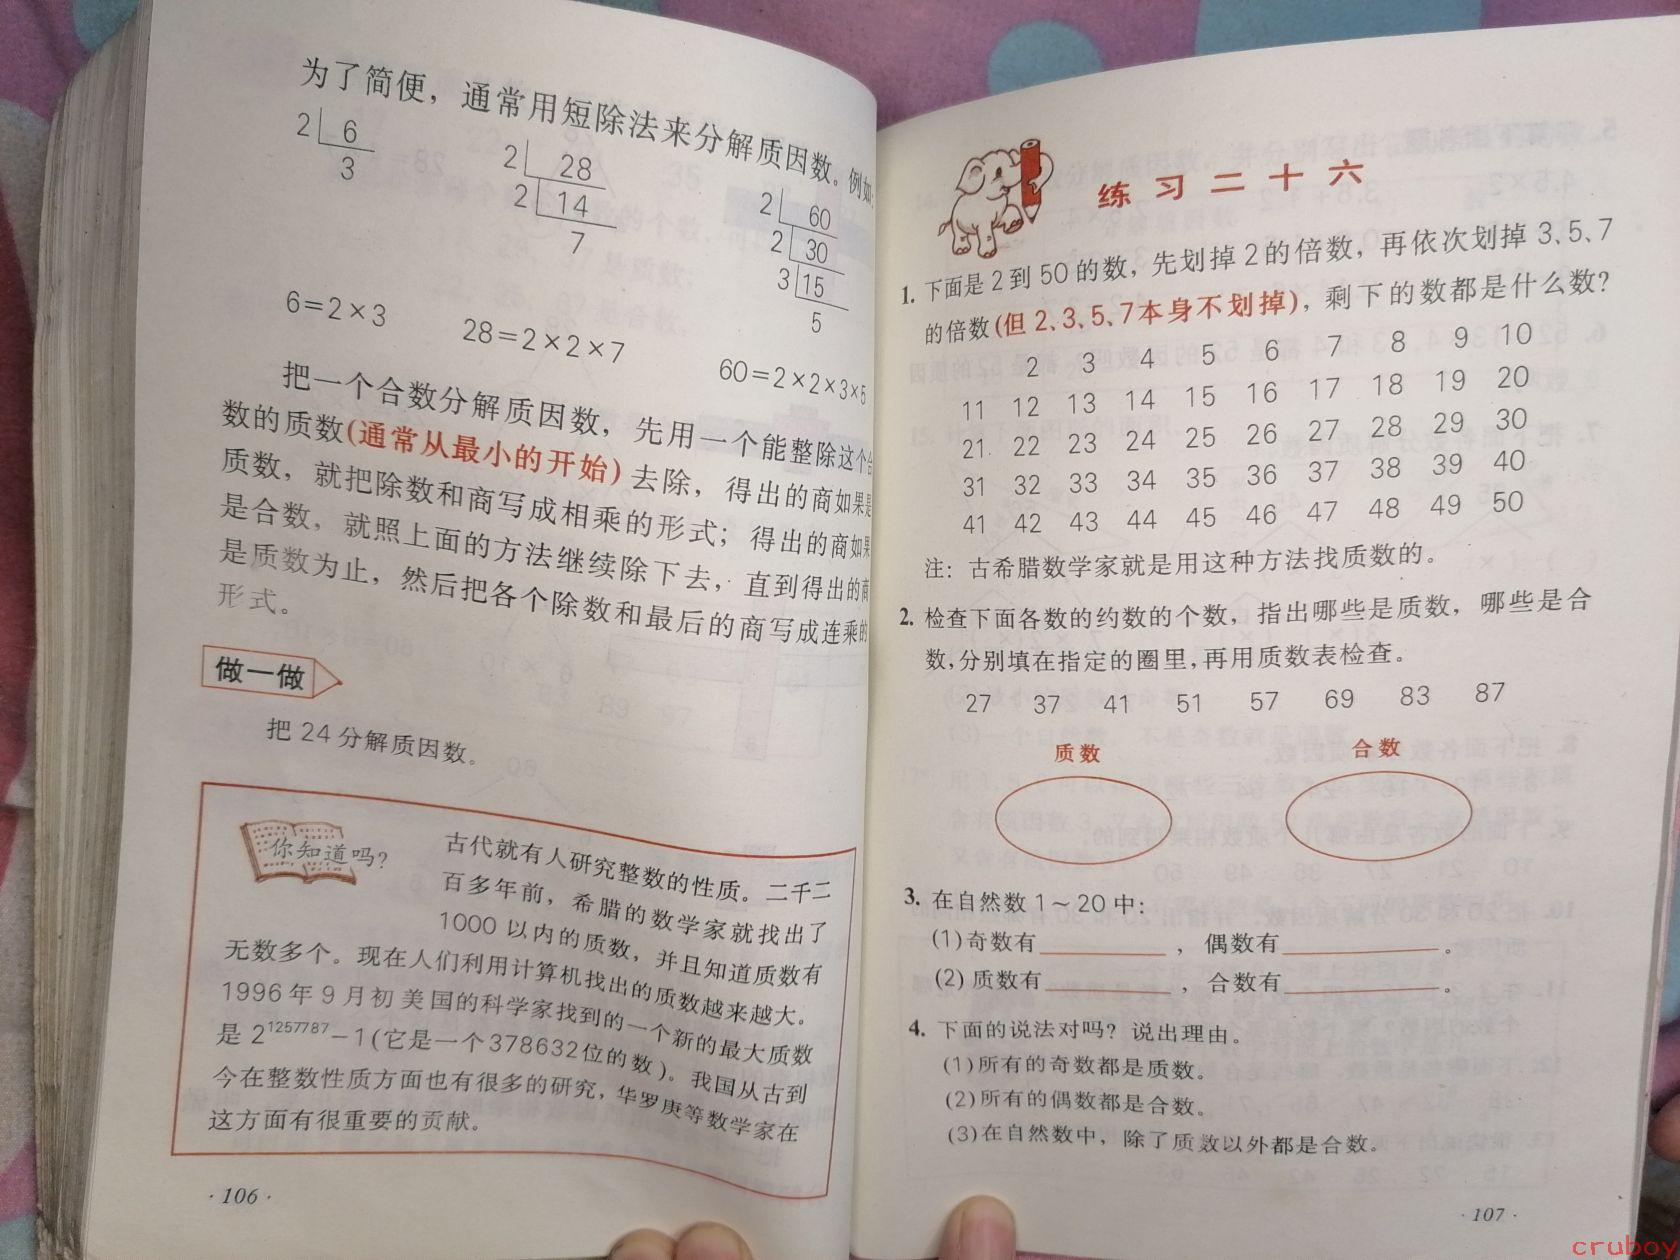 为了简便，通常用短除法来分解质因数。例如：
2 6
3
2 28
2 14
7
2 60
2 30
3 15
5
6=2×3
28=2×2×7
60=2×2×3×5
把一个合数分解质因数，先用一个能整除这个合
数的质数(通常从最小的开始)去除，得出的商如果是
质数，就把除数和商写成相乘的形式；得出的商如果
是合数，就照上面的方法继续除下去，直到得出的商
是质数为止，然后把各个除数和最后的商写成连乘的
形式。
做一做
把 24 分解质因数。
你知道吗?
古代就有人研究整数的性质。二千二
百多年前，希腊的数学家就找出了
1000 以内的质数，并且知道质数有
无数多个。现在人们利用计算机找出的质数越来越大。
1996年9月初美国的科学家找到的一个新的最大质数
是 2^1257787-1(它是一个378632位的数)。我国从古到
今在整数性质方面也有很多的研究，华罗庚等数学家在
这方面有很重要的贡献。
·106·
练习二十六
1. 下面是2到50的数，先划掉2的倍数，再依次划掉3、5、7
的倍数(但 2、3、5、7本身不划掉)，剩下的数都是什么数?
2 3 4 5 6 7 8 9 10
11 12 13 14 15 16 17 18 19 20
21 22 23 24 25 26 27 28 29 30
31 32 33 34 35 36 37 38 39 40
41 42 43 44 45 46 47 48 49 50
注：古希腊数学家就是用这种方法找质数的。
2. 检查下面各数的约数的个数，指出哪些是质数，哪些是合
数,分别填在指定的圈里,再用质数表检查。
27 37 41 51 57 69 83 87
质数 合数
3. 在自然数1～20中:
(1)奇数有________，偶数有________。
(2)质数有________，合数有________。
4. 下面的说法对吗？说出理由。
(1)所有的奇数都是质数。
(2)所有的偶数都是合数。
(3)在自然数中，除了质数以外都是合数。
·107·
cruboy